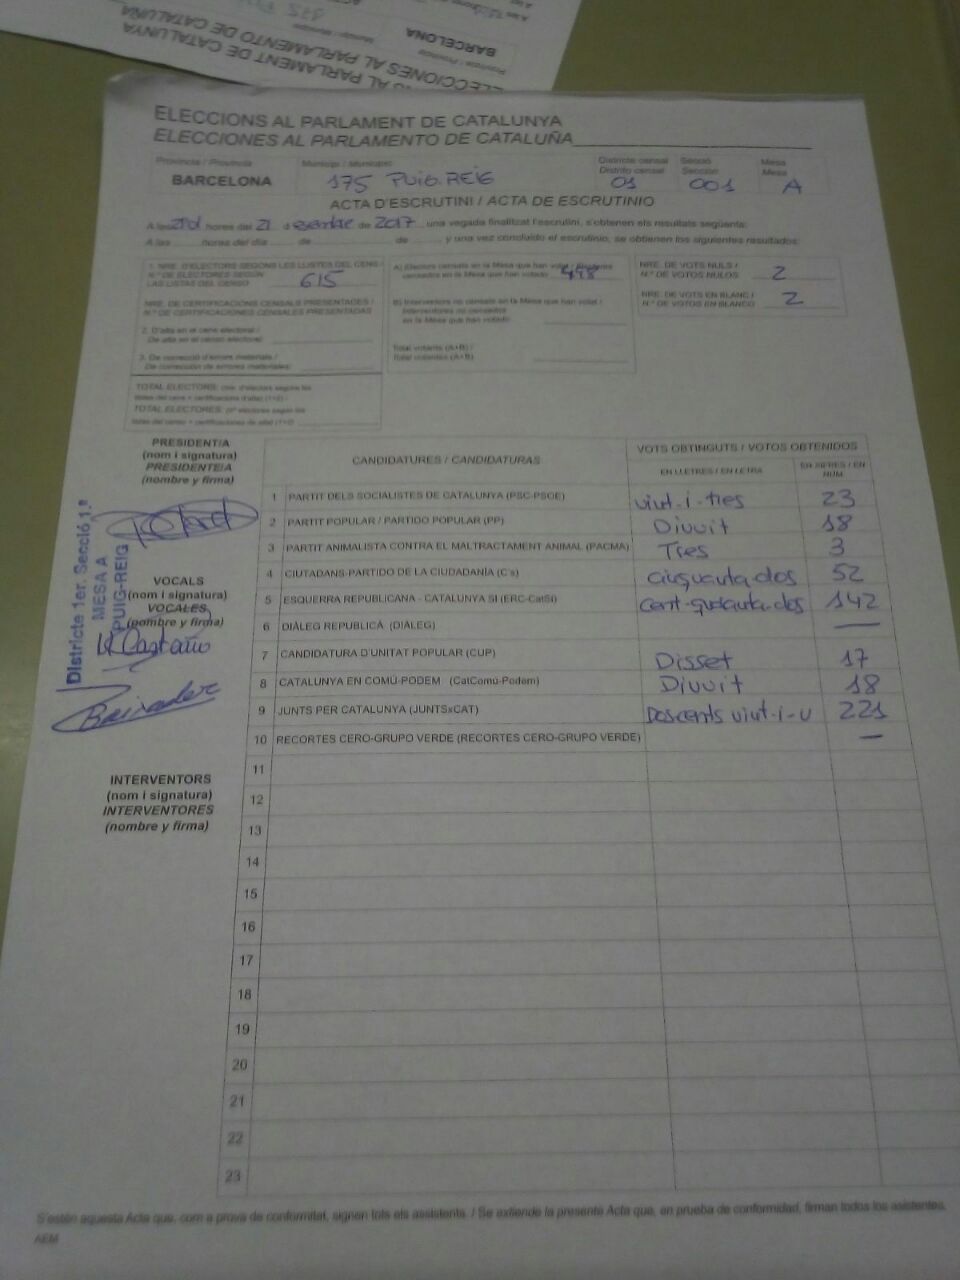 ELECCIONS AL PARLAMENT DE CATALUNYA
ELECCIONES AL PARLAMENTO DE CATALUÑA
Província / Provincia
BARCELONA
Municipi / Municipio
175 PUIG-REIG
Districte censal
Distrito censal
01
Secció
Sección
001
Mesa
Mesa
A
ACTA D'ESCRUTINI / ACTA DE ESCRUTINIO
A les hores del 21 d de 2017 una vegada finalitzat l'escrutini, s'obtenen els resultats següents:
A las horas del día de de y una vez concluido el escrutinio, se obtienen los siguientes resultados:
1. NRE. D'ELECTORS SEGONS LES LLISTES DEL CENS /
N.º DE ELECTORES SEGÚN
LAS LISTAS DEL CENSO 615
NRE. DE CERTIFICACIONS CENSALS PRESENTADES /
N.º DE CERTIFICACIONES CENSALES PRESENTADAS
2. D'alta en el cens electoral /
De alta en el censo electoral:
3. De correcció d'errors materials /
De corrección de errores materiales:
TOTAL ELECTORS:
TOTAL ELECTORES:
A) Electors censats en la Mesa que han votat /
censados en la Mesa que han votado 478
B) Interventors no censats en la Mesa que han votat /
Interventores no censados
en la Mesa que han votado
Total votants (A+B) /
Total votantes (A+B)
NRE. DE VOTS NULS /
N.º DE VOTOS NULOS 2
NRE. DE VOTS EN BLANC /
N.º DE VOTOS EN BLANCO 2
PRESIDENT/A
(nom i signatura)
PRESIDENTE/A
(nombre y firma)
Districte 1er. Secció 1.ª
MESA A
PUIG-REIG
VOCALS
(nom i signatura)
VOCALES
(nombre y firma)
INTERVENTORS
(nom i signatura)
INTERVENTORES
(nombre y firma)
CANDIDATURES / CANDIDATURAS
VOTS OBTINGUTS / VOTOS OBTENIDOS
EN LLETRES / EN LETRA
EN XIFRES / EN NÚM
1 PARTIT DELS SOCIALISTES DE CATALUNYA (PSC-PSOE) vint-i-tres 23
2 PARTIT POPULAR / PARTIDO POPULAR (PP) Divuit 18
3 PARTIT ANIMALISTA CONTRA EL MALTRACTAMENT ANIMAL (PACMA) Tres 3
4 CIUTADANS-PARTIDO DE LA CIUDADANÍA (C's) cinquanta dos 52
5 ESQUERRA REPUBLICANA - CATALUNYA SÍ (ERC-CatSí) cent-quranta-dos 142
6 DIÀLEG REPUBLICÀ (DIÀLEG) —
7 CANDIDATURA D'UNITAT POPULAR (CUP) Disset 17
8 CATALUNYA EN COMÚ-PODEM (CatComú-Podem) Divuit 18
9 JUNTS PER CATALUNYA (JUNTSxCAT) Doscents vint-i-u 221
10 RECORTES CERO-GRUPO VERDE (RECORTES CERO-GRUPO VERDE) —
11
12
13
14
15
16
17
18
19
20
21
22
23
S'estén aquesta Acta que, com a prova de conformitat, signen tots els assistents. / Se extiende la presente Acta que, en prueba de conformidad, firman todos los asistentes.
AEM